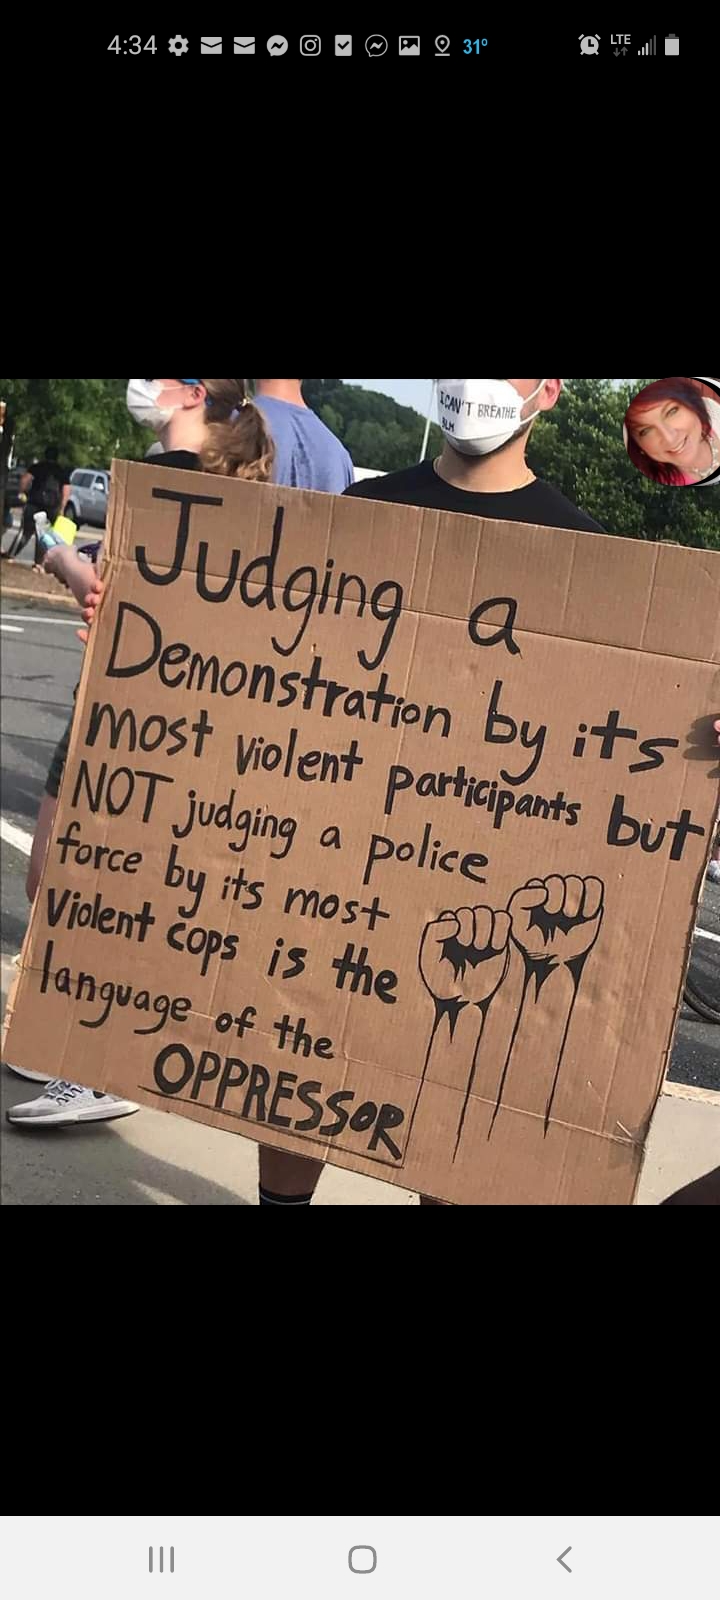 4:34
31°
LTE
I CAN'T BREATHE
BLM
Judging a
Demonstration by its
most violent participants but
NOT judging a police
force by its most
Violent cops is the
language of the
OPPRESSOR